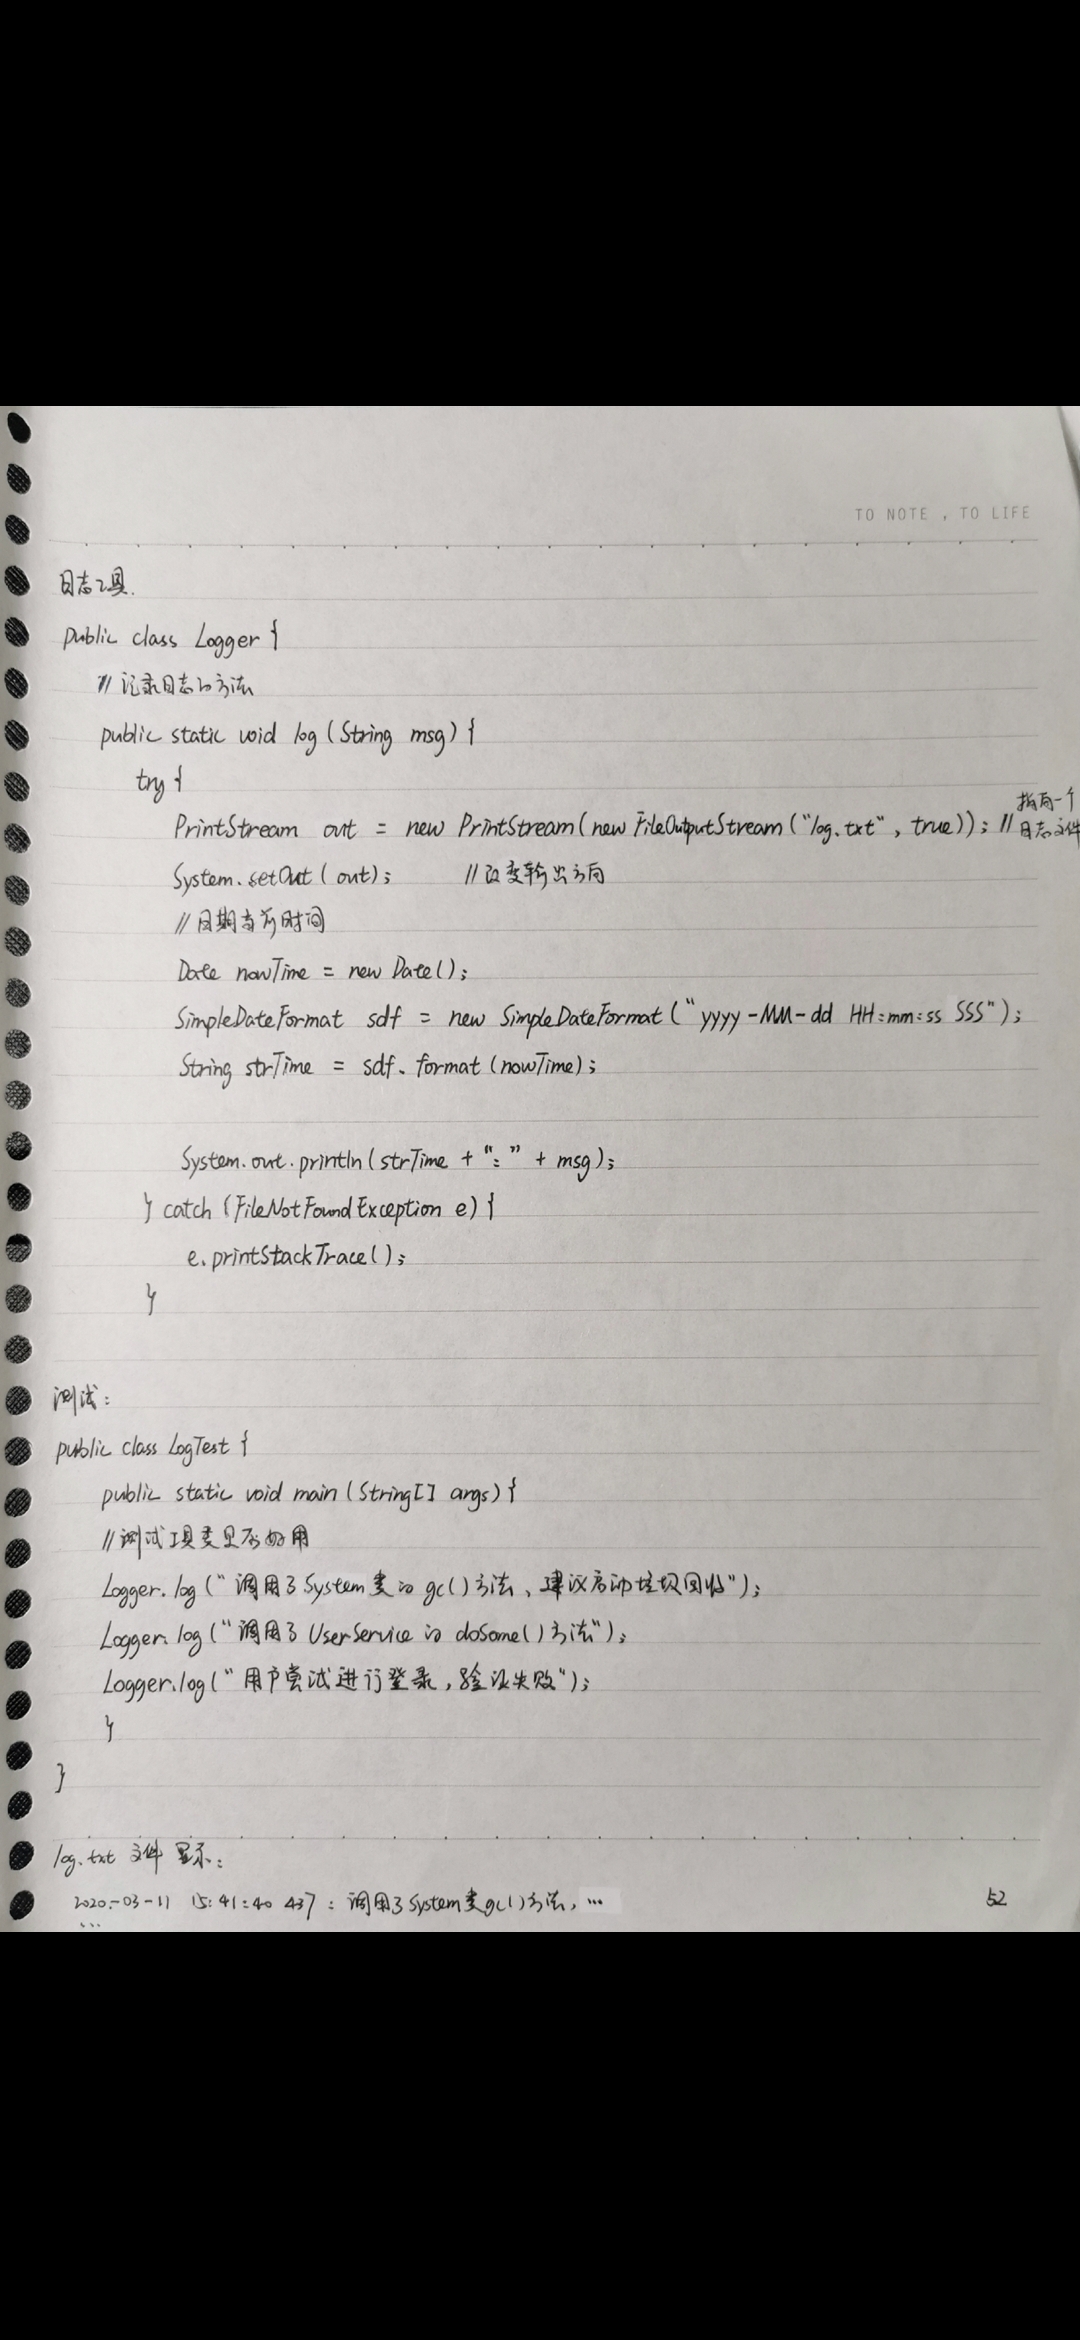 TO NOTE , TO LIFE
日志工具.
public class Logger {
// 记录日志的方法
public static void log (String msg) {
try {
PrintStream out = new PrintStream(new FileOutputStream("log.txt", true)); // 指向一个日志文件
System.setOut( out);  // 改变输出方向
// 日期当前时间
Date nowTime = new Date();
SimpleDateFormat sdf = new SimpleDateFormat("yyyy-MM-dd HH:mm:ss SSS");
String strTime = sdf.format(nowTime);
System.out.println(strTime + ":" + msg);
} catch (FileNotFoundException e) {
e.printStackTrace();
}
测试:
public class LogTest {
public static void main (String[] args) {
// 测试工具类是否好用
Logger.log(" 调用了System类的 gc()方法、建议启动垃圾回收");
Logger.log("调用了 UserService 的 doSome()方法");
Logger.log(" 用户尝试进行登录,验证失败");
}
}
log.txt 文件 显示:
2020-03-11 15:41:40 437 : 调用了System类gc()方法, …
…
52